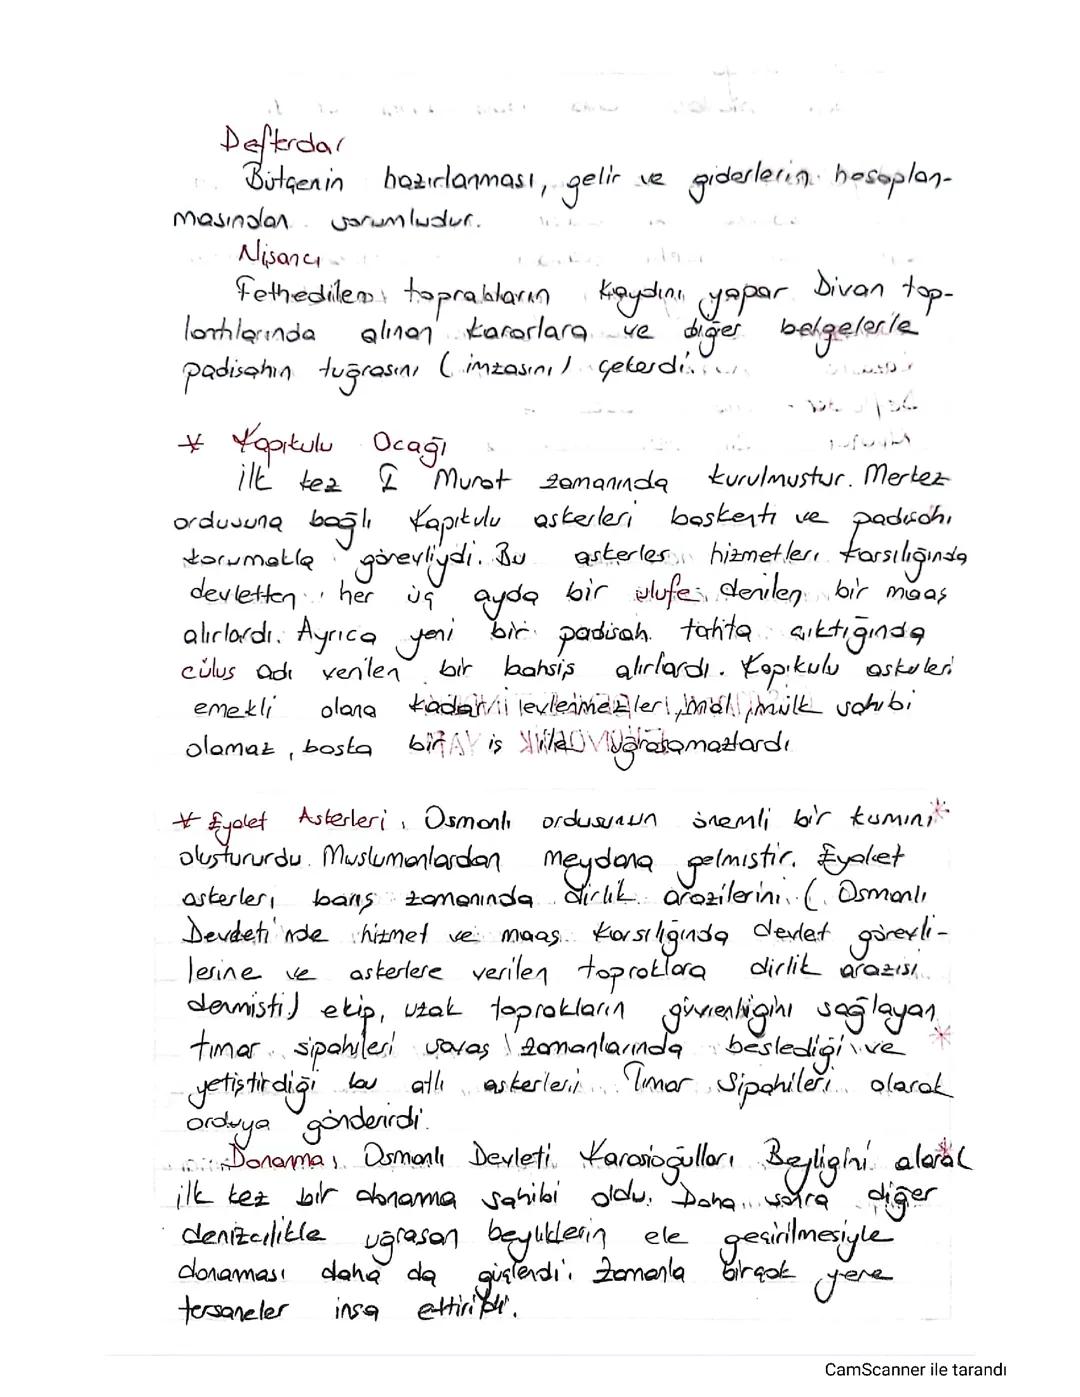 Defterdar
Bütçenin hazırlanması, gelir ve giderlerin hesaplan-
masından sorumludur.
Nişancı
Fethedilen toprakların kaydını yapar Divan top-
lantılarında alınan kararlara ve diğer belgelerle
padisahın tuğrasını (imzasını) çekerdi.
* Kapıkulu Ocağı
İlk kez I Murat zamanında kurulmustur. Merkez
ordusuna bağlı Kapıkulu askerleri baskenti ve padisahı
korumakla görevliydi. Bu askerler hizmetleri karsılığında
devletten her üç ayda bir ulufe denilen bir maaş
alırlardı. Ayrıca yeni bir padisah tahta çıktığında
cülus adı verilen bir bahsiş alırlardı. Kapıkulu askerleri
emekli olana kadar evlenmezler, mal, mülk sahibi
olamaz, baska bir iş ile uğrasamazlardı
* Eyalet Askerleri, Osmanlı ordusunun önemli bir kısmını
olustururdu. Muslumanlardan meydana gelmistir. Eyalet
askerleri barış zamanında dirlik arazilerini (Osmanlı
Devleti'nde hizmet ve maaş karsılığında devlet görevli-
lerine ve askerlere verilen topraklara dirlik arazisi
denmisti) ekip, uzak toprakların güvenliğini sağlayan
tımar sipahileri savaş zamanlarında beslediği ve
yetiştirdiği bu atlı askerleri Tımar Sipahileri olarak
orduya gönderirdi.
Donanma, Osmanlı Devleti Karasioğulları Beyliğini alarak
ilk kez bir donanma sahibi oldu. Daha sonra diğer
denizcilikle uğrasan beyliklerin ele geçirilmesiyle
donaması daha da güçlendi. Zamanla birçok yere
tersaneler insa ettirildi.
CamScanner ile tarandı